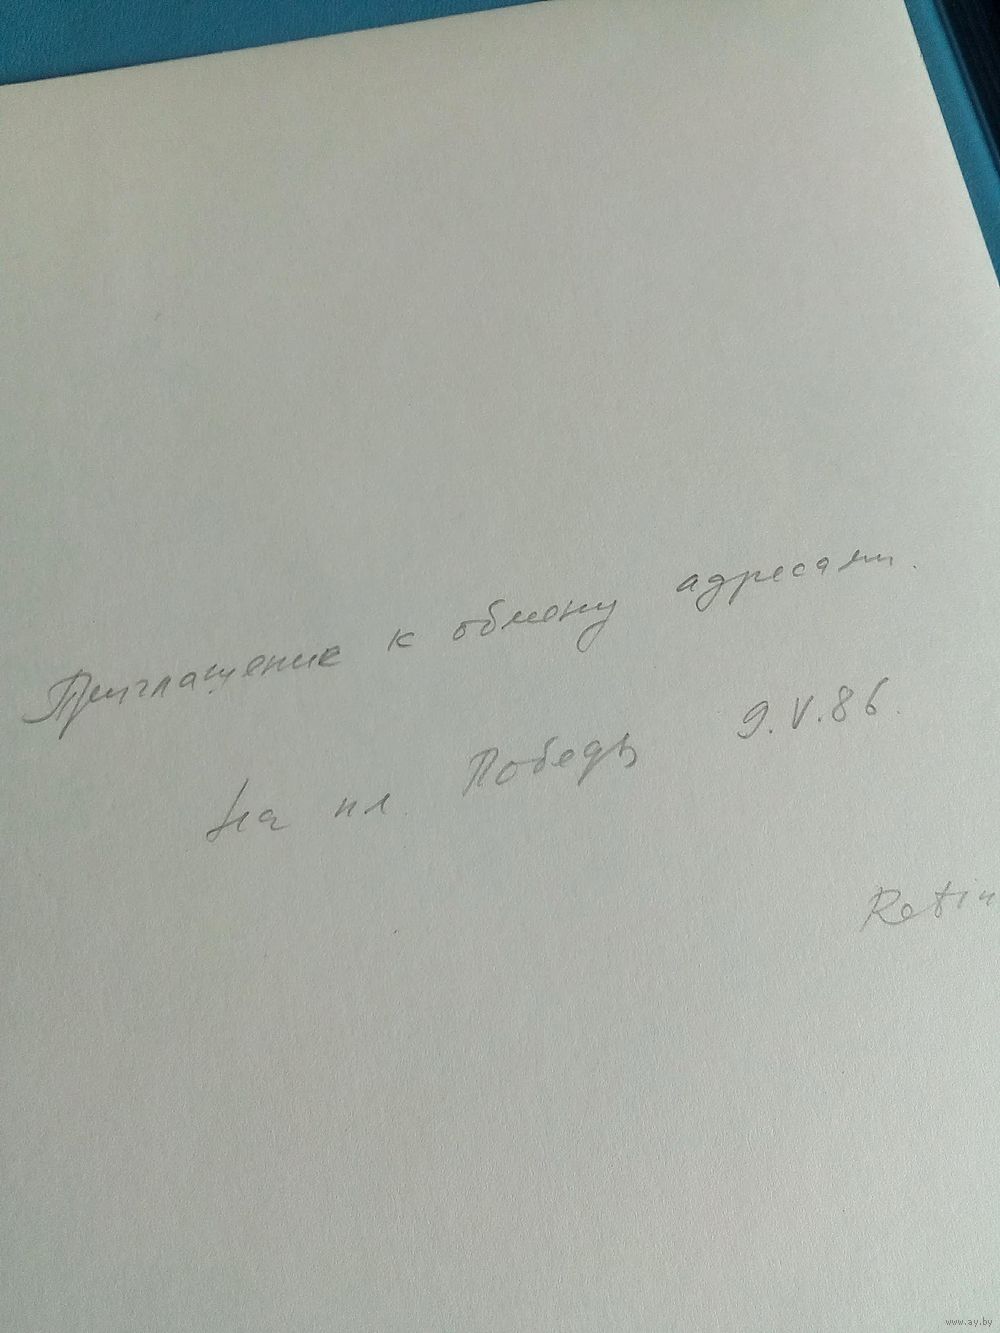 Приглашение к обмену адресами.
На пл. Победы 9.V.86.
www.ay.by